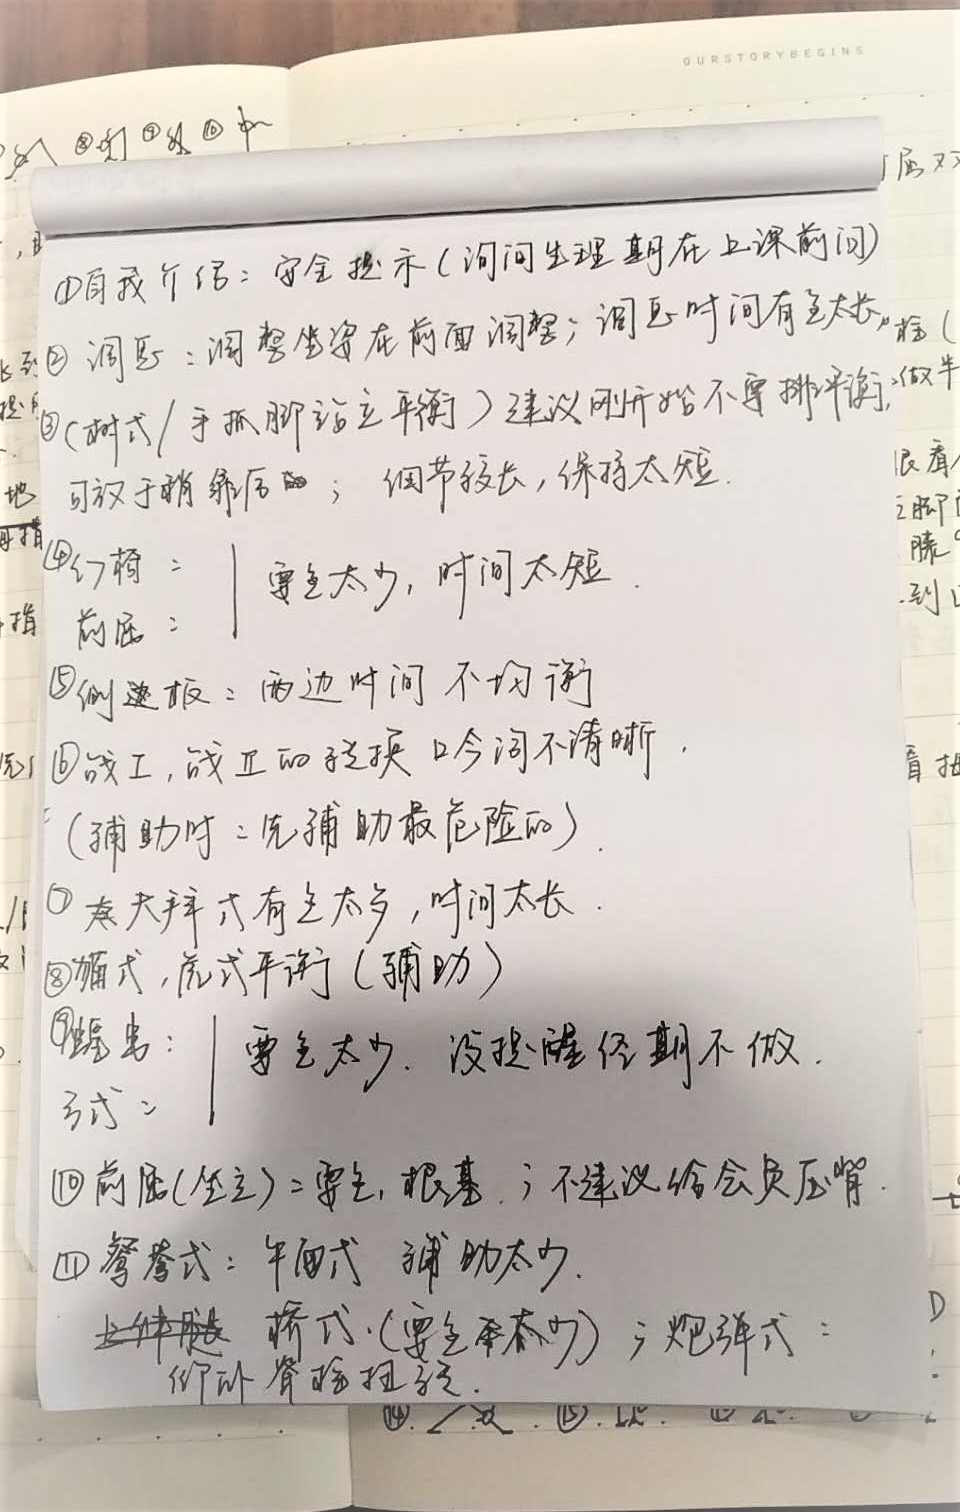 OURSTORYBEGINS
①自我介绍：安全提示(询问生理期在上课前问)
②调息：调整坐姿在前面调整；调息时间有点太长。
③(树式/手抓脚站立平衡)建议刚开始不要排平衡,
可放于稍靠后；细节较长,保持太短.
④幻椅：
要点太少,时间太短.
前屈：
⑤侧边板：两边时间不均衡
⑥战I,战II的转换口令词不清晰.
(辅助时：先辅助最危险的).
⑦大拜式有点太多,时间太长.
⑧猫式,虎式平衡(辅助)
⑨蝗虫：
要点太少.没提醒经期不做.
弓式：
⑩前屈(坐立)：要点,根基.；不建议给会员压背.
⑪鸳鸯式：牛面式 辅助太少.
桥式.(要点太少)；炮弹式：
仰卧脊柱扭转.